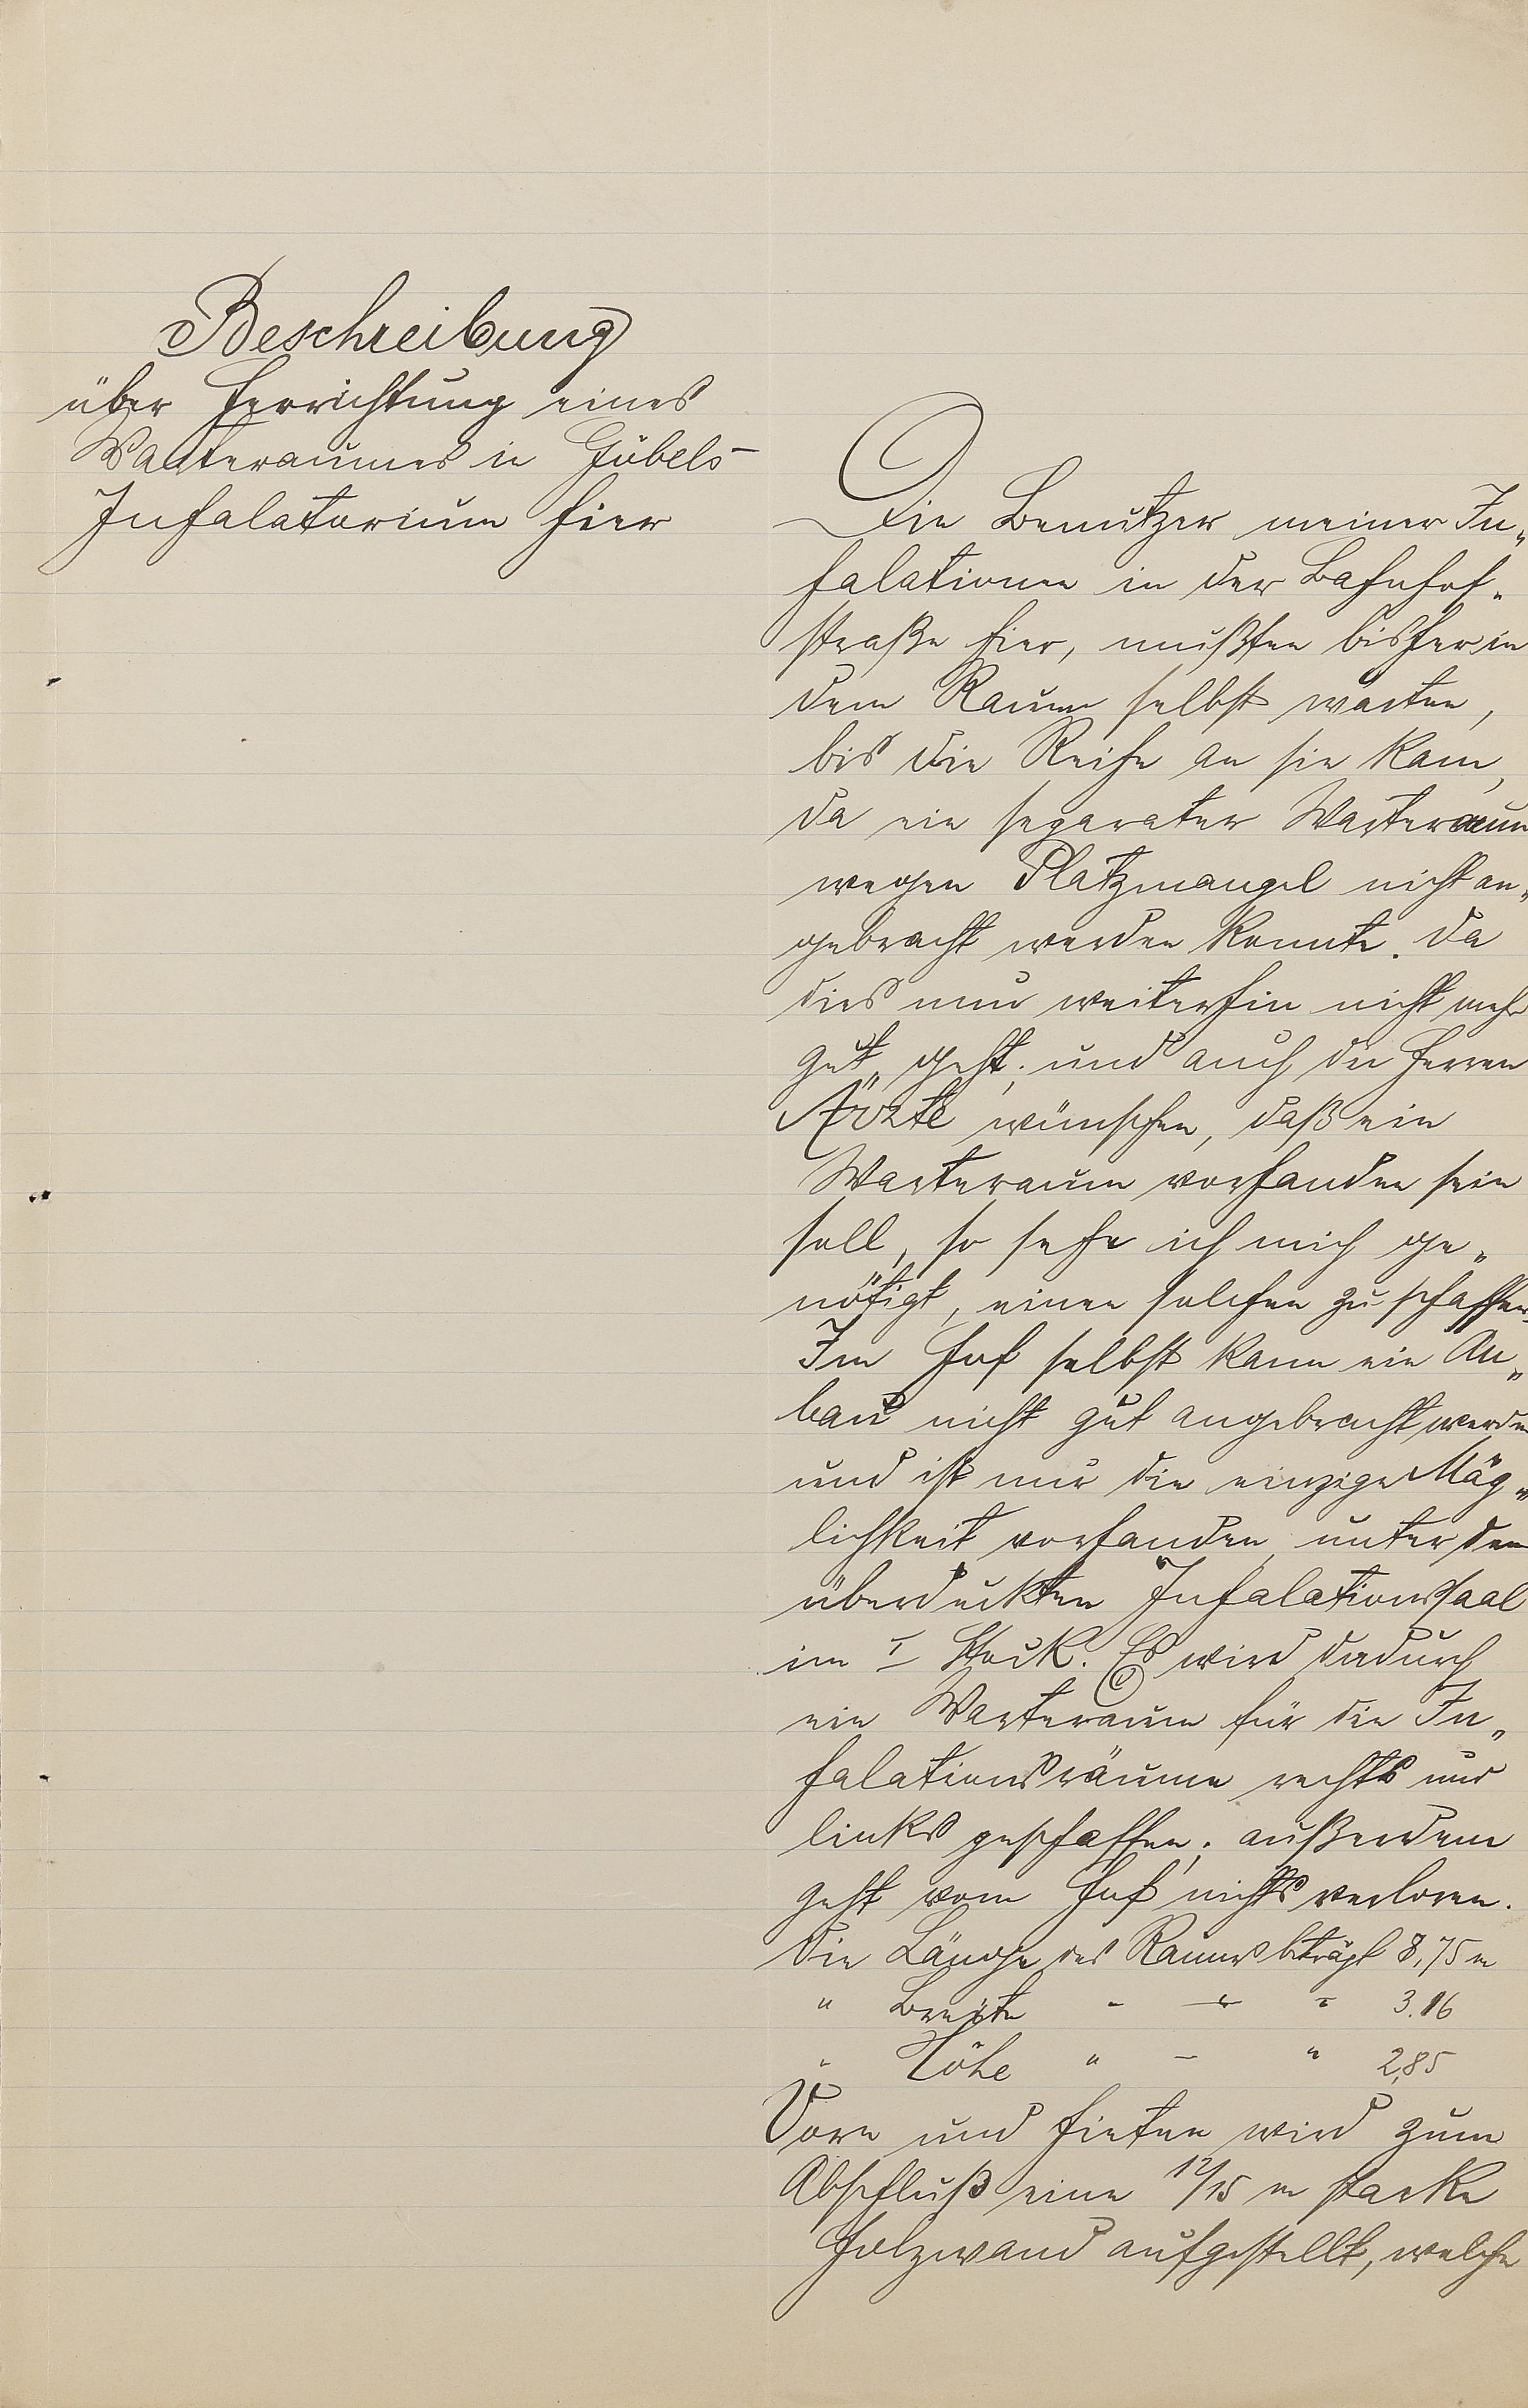 Beschreibung
über Herrichtung eines
Warteraumes in Göbels-
Inhalatorium hier
Die Benützer meiner In„
halationen in der Bahnhof„
straße hier, mußten bisher in
dem Raum selbst warten,
bis die Reihe an sie kam,
da ein separater Warteraum
wegen Platzmangel nicht an„
gebracht werden konnte. Da
dies nun weiterhin nicht mehr
gut geht; und auch die Herren
Ärzte wünschen, daß ein
Warteraum vorhanden sein
soll, so sehe ich mich ge„
nötigt, einen solchen zu schaffen.
Im Hof selbst kann ein An„
bau nicht gut angebracht werden
und ist nur die einzige Mög„
lichkeit vorhanden, unter dem
überdeckten Inhalationssaal
im I Stock. Es wird dadurch
ein Warteraum für die In„
halationsräume rechts und
links geschaffen; außerdem
geht vom Hof nichts verloren.
Die Länge des Raumes beträgt 8,75 m
" Breite " " " 3.16
" Höhe " " " 2,85
Vorn und hinten wird zum
Abschluß eine 12/15 m starke
Holzwand aufgestellt, welche